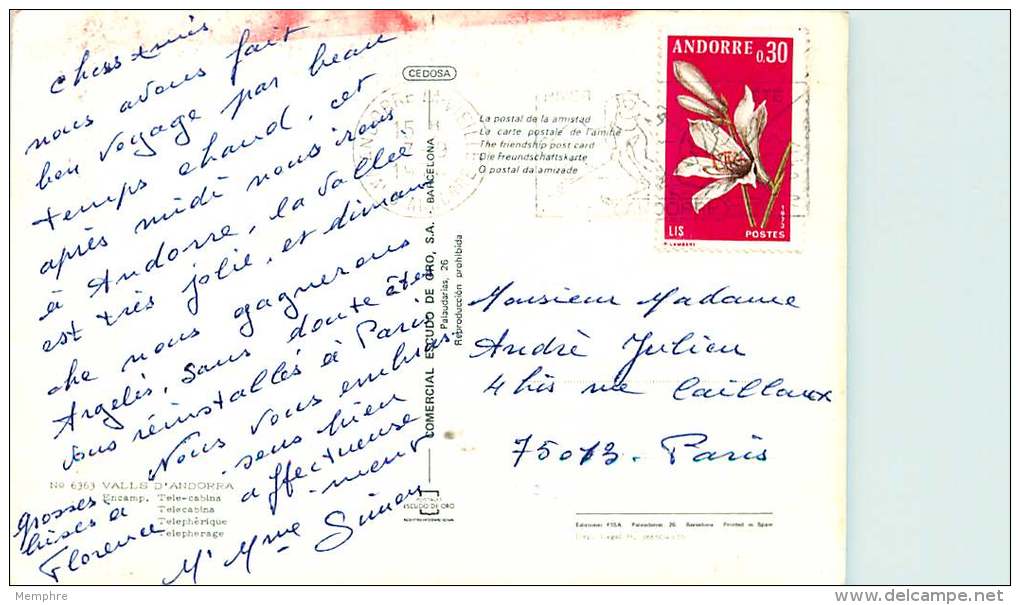 chers amis
nous avons fait
bon voyage par beau
temps chaud, cet
après midi nous irons
à Andorre, la vallée
est très jolie, et diman
che nous gagnerons
Argelès. Sans doute êtes
vous réinstallés à Paris.
Nous vous embras
sons bien
affectueuse
ment
grosses
bises à
Florence
Mr Mme
No 6363 VALLS D'ANDORRA
Encamp. Tele-cabina
Telecabina
Telephèrique
Telepherage
CEDOSA
COMERCIAL ESCUDO DE ORO, S.A. - BARCELONA
Palaudarias, 26
Reproducción prohibida
ESCUDO DE ORO
La postal de la amistad
La carte postale de l'amitié
The friendship post card
Die Freundschaftskarte
O postal da amizade
ANDORRE 0.30
LIS
1973
POSTES
P. LAMBERT
Monsieur Madame
André Julien
4 bis rue Cailloux
75013. Paris
Ediciones FISA. Palaudarias, 26. Barcelona Printed in Spain
Memphre
delcampe.net